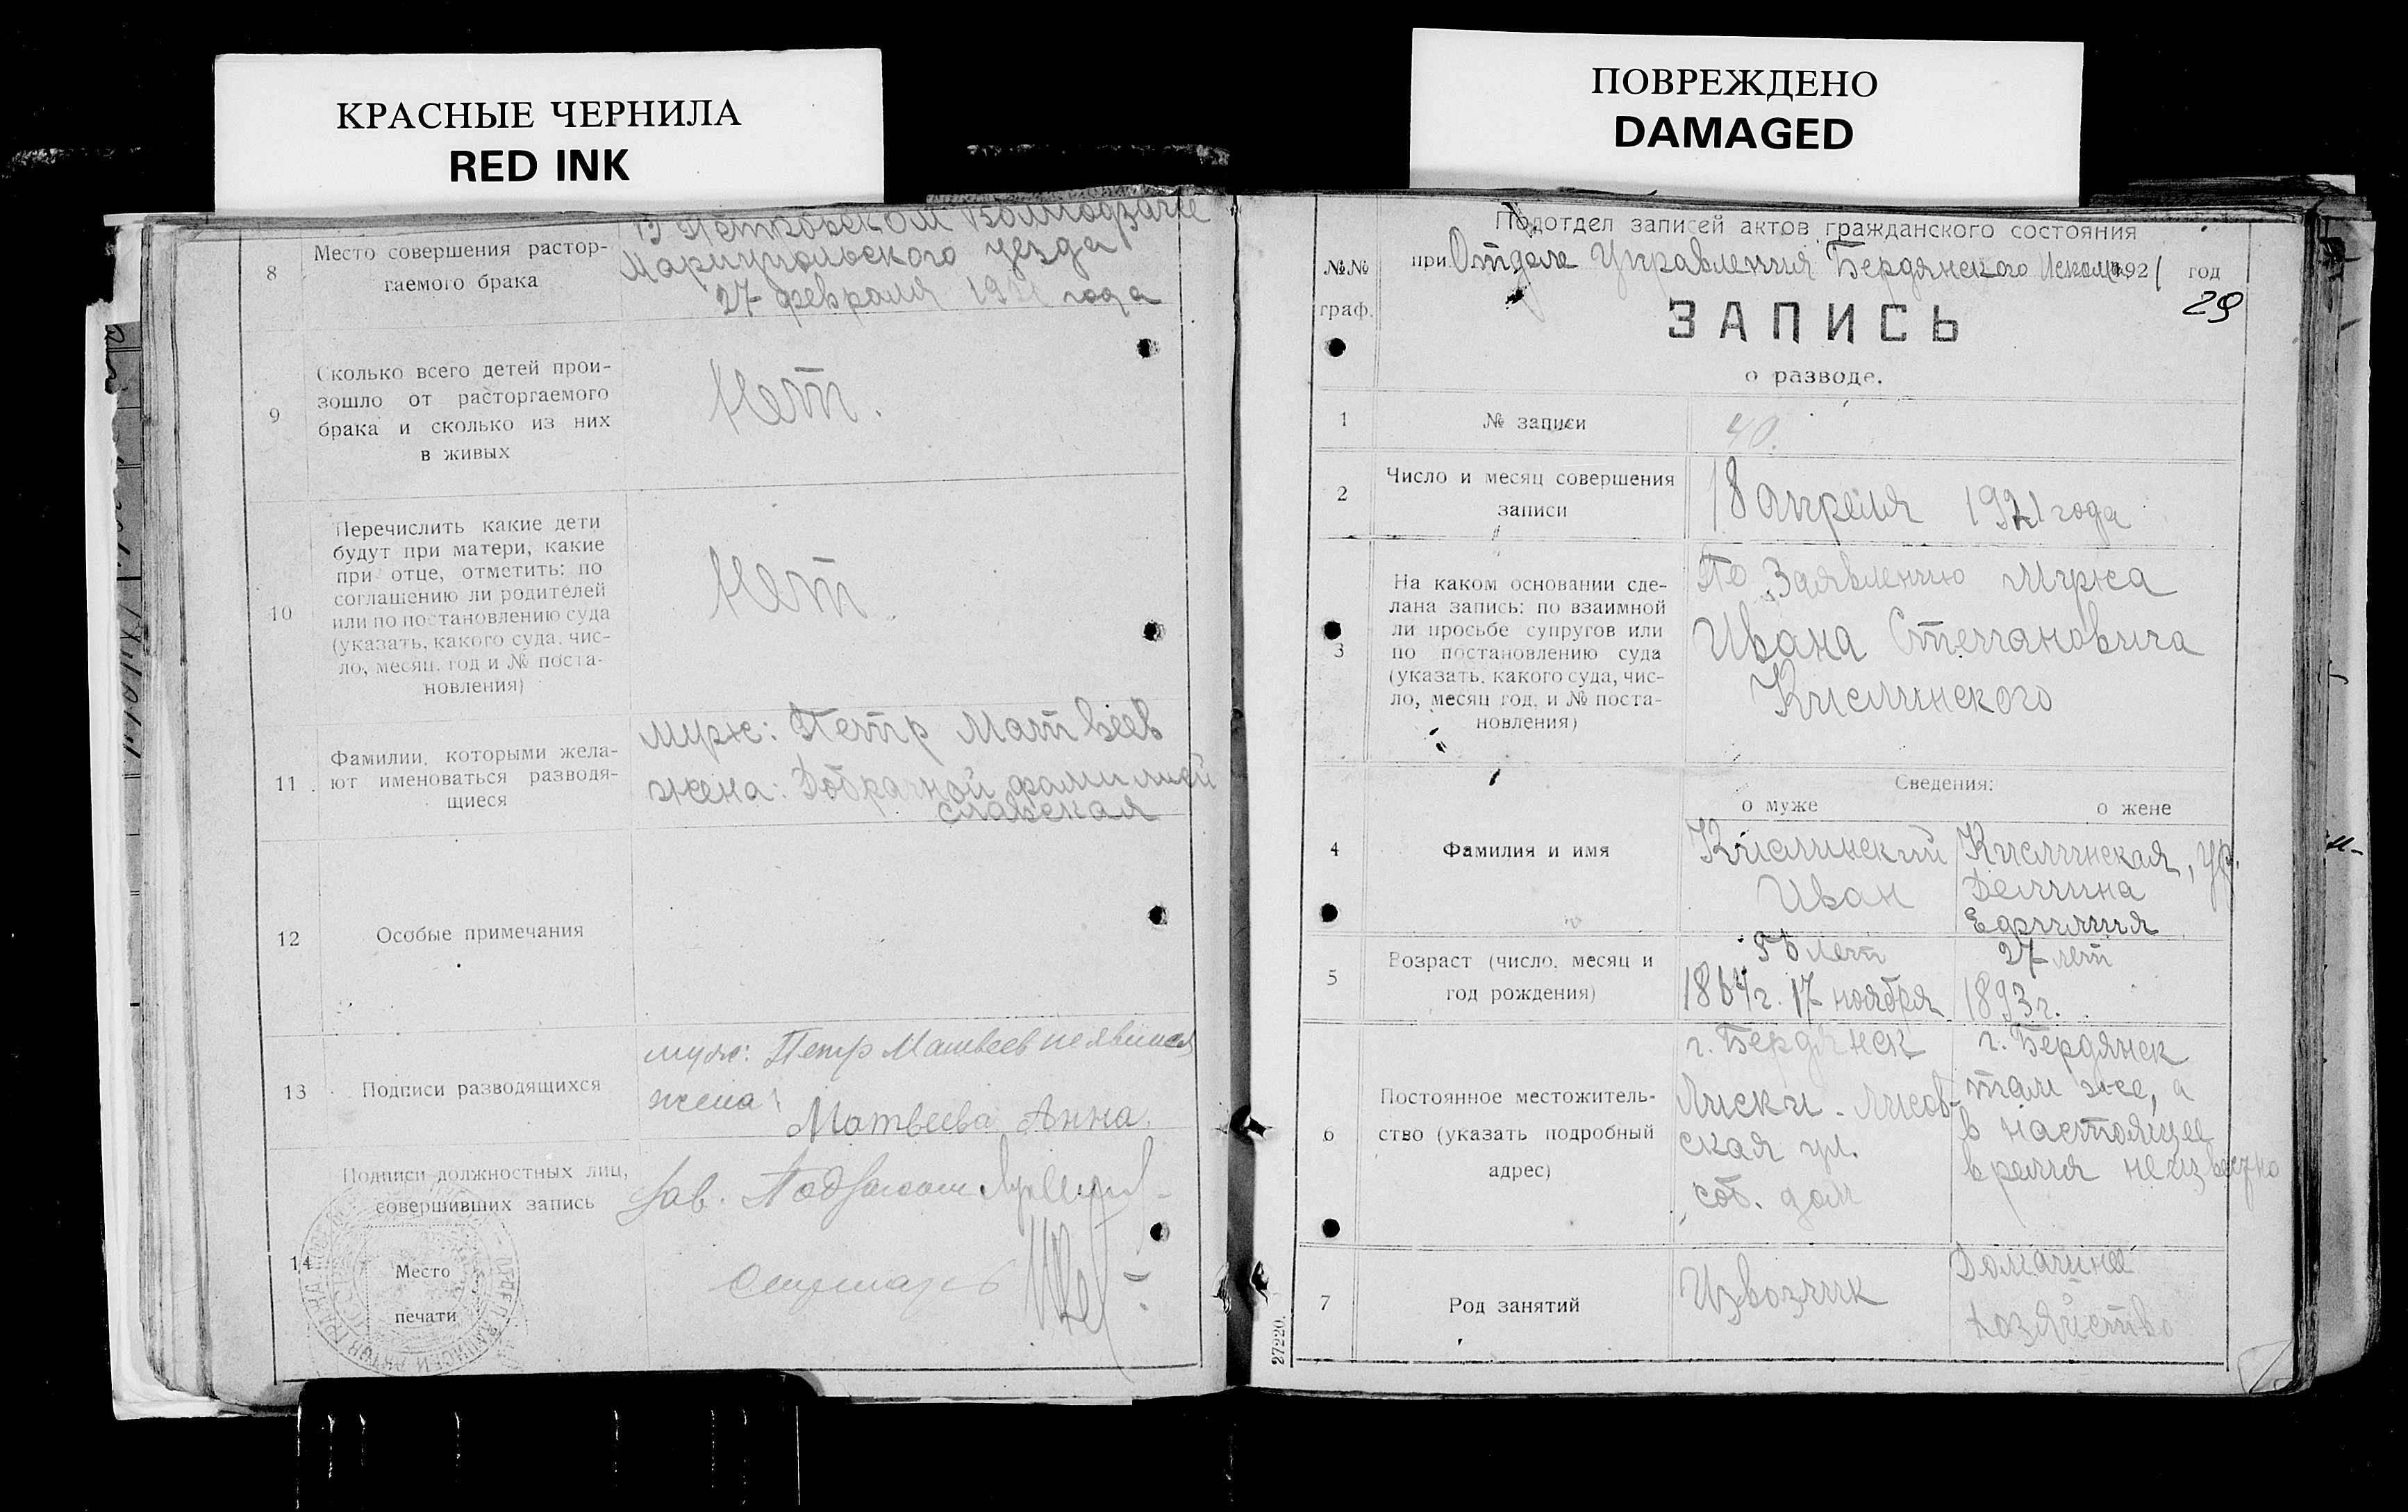 КРАСНЫЕ ЧЕРНИЛА
RED INK
ПОВРЕЖДЕНО
DAMAGED
8
Место совершения растор-
гаемого брака
В Петровском
Мариупольского уезда
27 февраля 1921 года
9
Сколько всего детей прои-
зошло от расторгаемого
брака и сколько из них
в живых
Нет.
10
Перечислить какие дети
будут при матери, какие
при отце, отметить: по
соглашению ли родителей
или по постановлению суда
(указать, какого суда, чис-
ло, месяц, год и № поста-
новления)
Нет
11
Фамилии, которыми жела-
ют именоваться разводя-
щиеся
муж: Петр Матвеев
жена: Добрачной фамилией
славская
12
Особые примечания
13
Подписи разводящихся
муж: Петр Матвеев не явился
жена:
Матвеева Анна.
14
Подписи должностных лиц,
совершивших запись
Зав.
Место
печати
Подотдел записей актов гражданского состояния
№№
граф.
при Отделе Управления Бердянского Исполк. 1921 год
29
ЗАПИСЬ
о разводе.
1
№ записи
40.
2
Число и месяц совершения
записи
18 апреля 1921 года
3
На каком основании сде-
лана запись: по взаимной
ли просьбе супругов или
по постановлению суда
(указать, какого суда, чис-
ло, месяц год, и № поста-
новления)
По Заявлению мужа
Ивана Степановича
Кислинского
Сведения:
о муже
о жене
4
Фамилия и имя
Кислинский
Иван
Кислинская, ур.
Демина
5
Возраст (число, месяц и
год рождения)
56 лет
1864 г. 17 ноября
27 лет
1893 г.
6
Постоянное местожитель-
ство (указать подробный
адрес)
г. Бердянск
Лиски. Лисов-
ская ул.
соб. дом
г. Бердянск
там же, а
в настоящее
время неизвестно
7
Род занятий
Извозчик
Домашнее
хозяйство
27220.